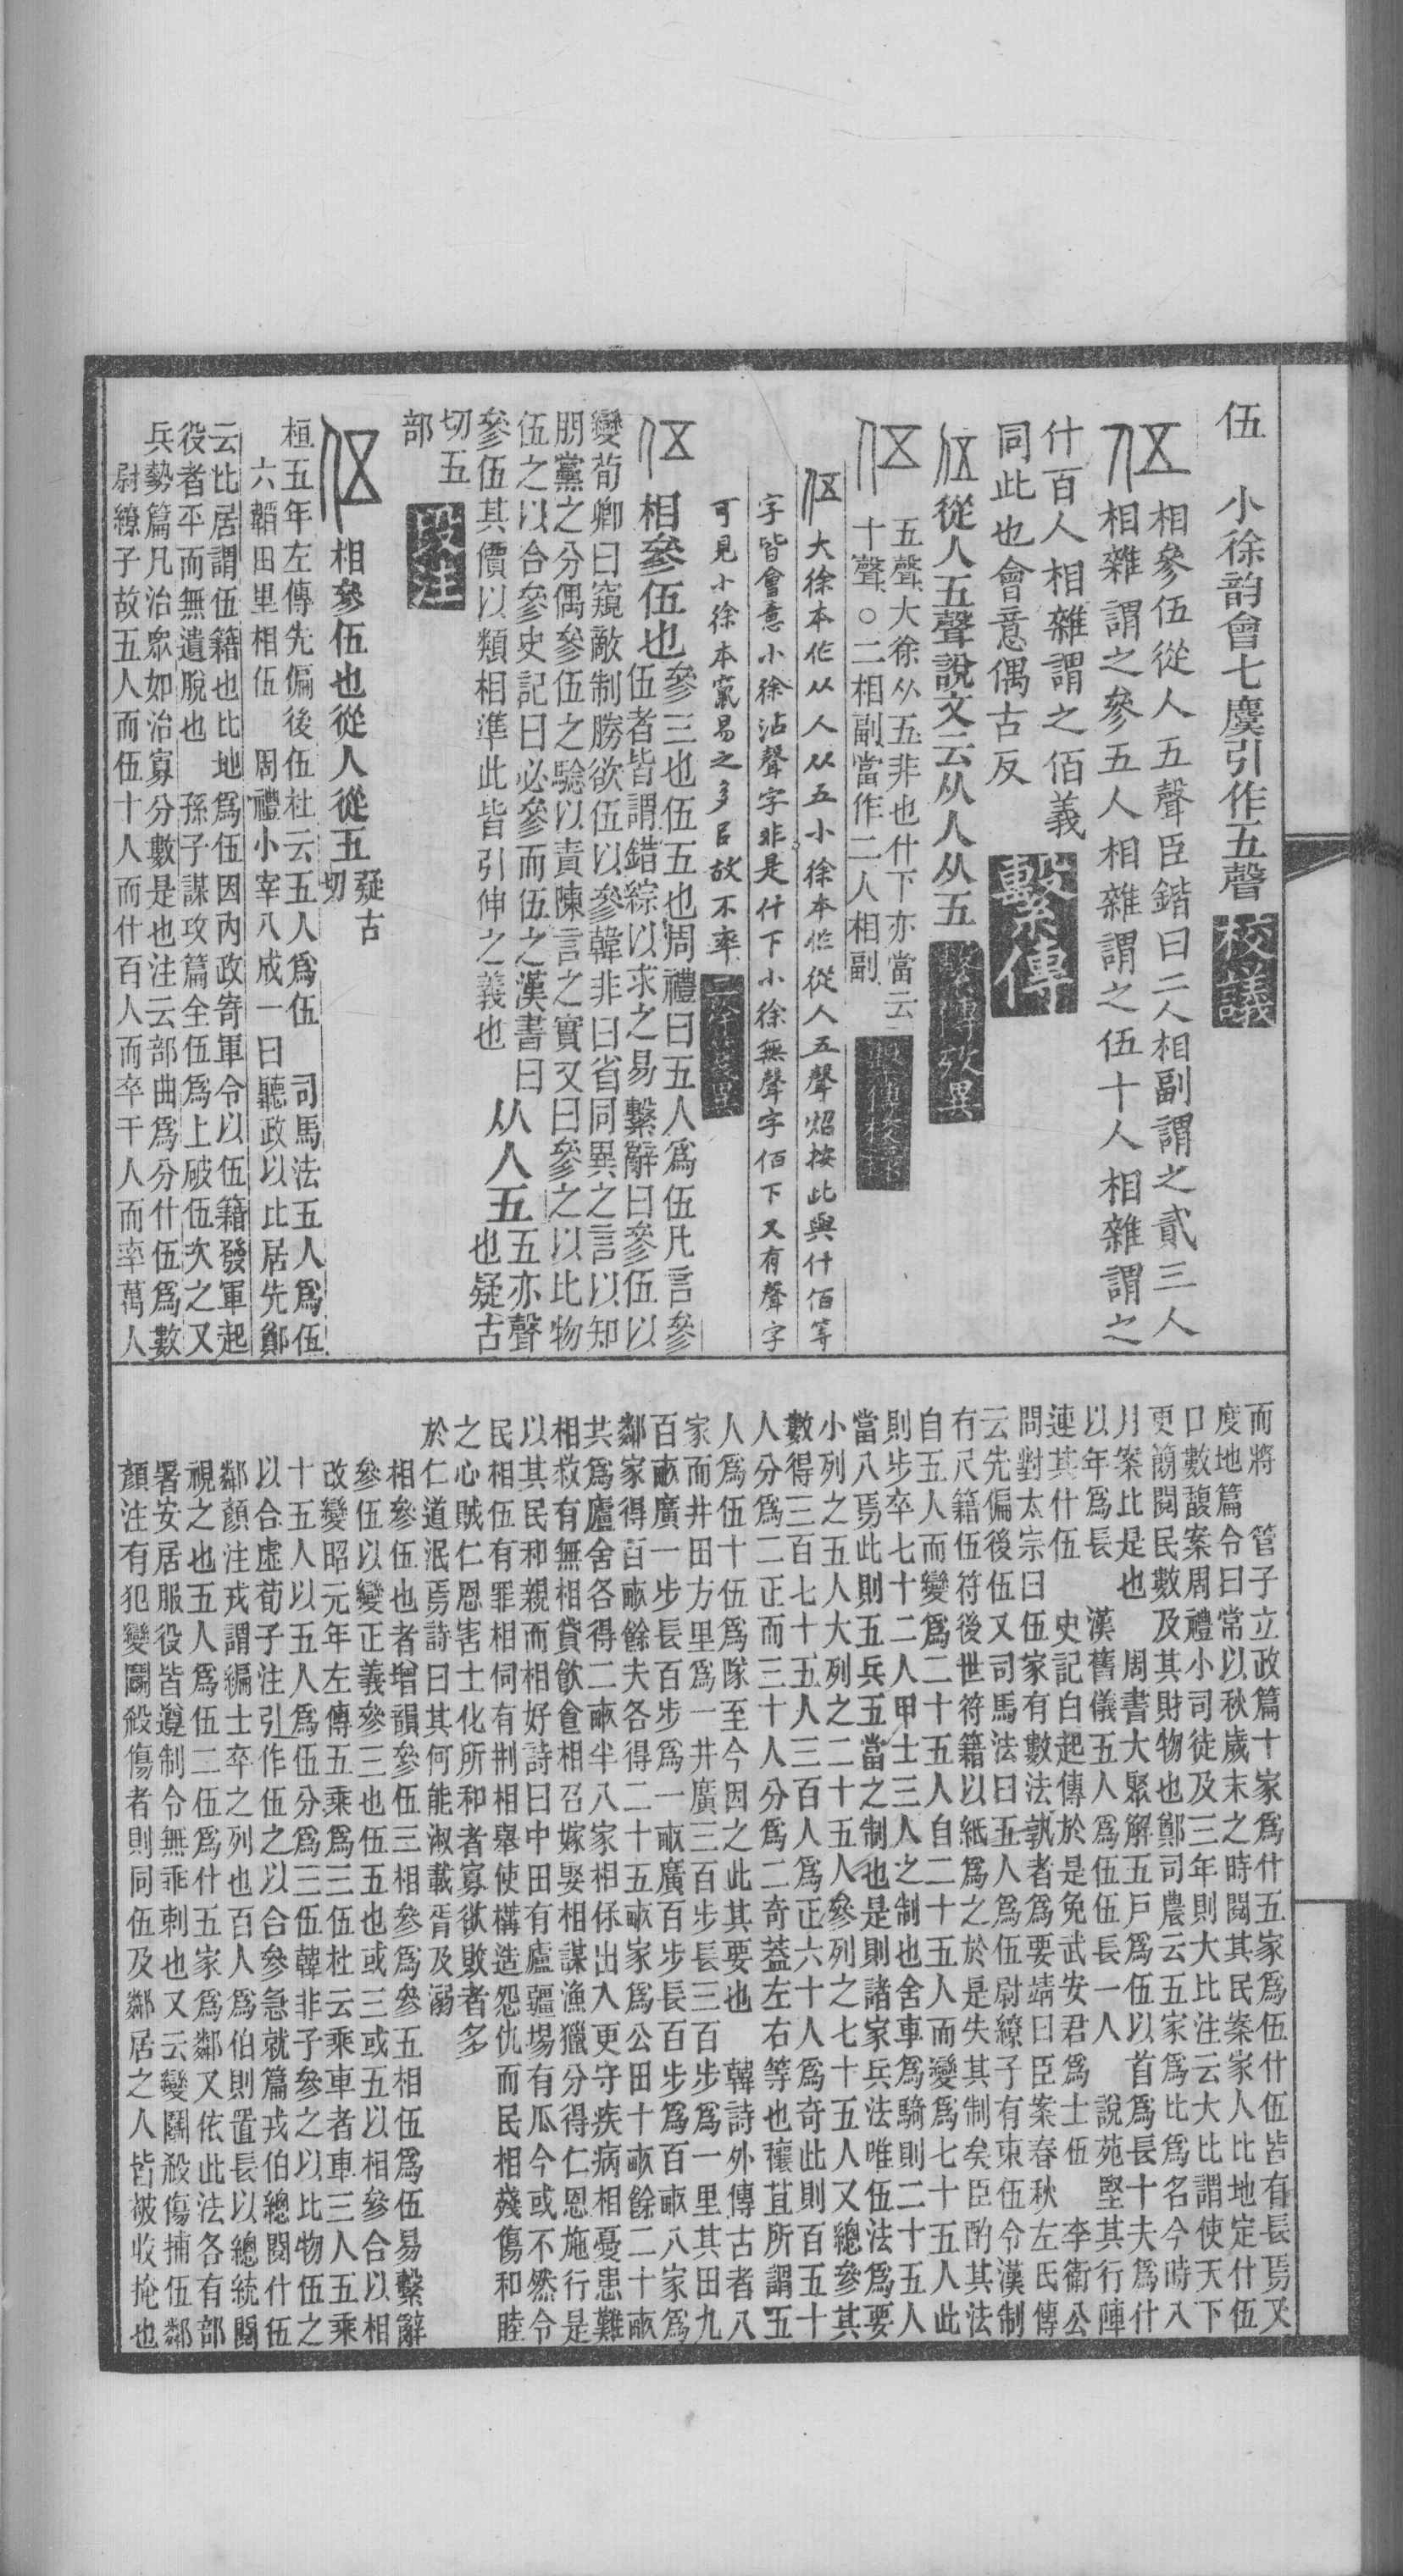 伍　小徐韵會七麌引作五聲 校議
伍 相參伍從人五聲臣鍇曰二人相副謂之貳三人
相雜謂之參五人相雜謂之伍十人相雜謂之
什百人相雜謂之佰義
同此也會意偶古反 繫傳
伍從人五聲說文云从人从五 繫傳攷異
伍 五聲大徐从五非也什下亦當云
十聲○二相副當作二人相副
伍大徐本作从人从五小徐本作從人五聲炤按此與什佰等
字皆會意小徐沾聲字非是什下小徐無聲字佰下又有聲字
可見小徐本竄易之多呂故不率 二徐箋異
伍 相參伍也參三也伍五也周禮曰五人爲伍凡言參
伍者皆謂錯綜以求之易繫辭曰參伍以
變荀卿曰窺敵制勝欲伍以參韓非曰省同異之言以知
朋黨之分偶參伍之驗以責陳言之實又曰參之以比物
伍之以合參史記曰必參而伍之漢書曰
參伍其價以類相準此皆引伸之義也
从人五五亦聲
也疑古
切五
部 段注
伍 相參伍也從人從五疑古
切
桓五年左傳先偏後伍杜云五人爲伍　司馬法五人爲伍
六韜田里相伍　周禮小宰八成一曰聽政以比居先鄭
云比居謂伍籍也比地爲伍因內政寄軍令以伍籍發軍起
役者平而無遺脫也　孫子謀攻篇全伍爲上破伍次之又
兵勢篇凡治眾如治寡分數是也注云部曲爲分什伍爲數
尉繚子故五人而伍十人而什百人而卒千人而率萬人
而將　管子立政篇十家爲什五家爲伍什伍皆有長焉又
度地篇令曰常以秋歲末之時閱其民案家人比地定什伍
口數馥案周禮小司徒及三年則大比注云大比謂使天下
更簡閱民數及其財物也鄭司農云五家爲比爲名今時八
月案比是也　周書大聚解五戶爲伍以首爲長十夫爲什
以年爲長　漢舊儀五人爲伍伍長一人　說苑堅其行陣
連其什伍　史記白起傳於是免武安君爲士伍　李衛公
問對太宗曰伍家有數法孰者爲要靖曰臣案春秋左氏傳
云先偏後伍又司馬法曰五人爲伍尉繚子有束伍令漢制
有尺籍伍符後世符籍以紙爲之於是失其制矣臣酌其法
自五人而變爲二十五人自二十五人而變爲七十五人此
則步卒七十二人甲士三人之制也舍車爲騎則二十五人
當八焉此則五兵五當之制也是則諸家兵法唯伍法爲要
小列之五人大列之二十五人參列之七十五人又總參其
數得三百七十五人三百人爲正六十人爲奇此則百五十
人分爲二正而三十人分爲二奇蓋左右等也穰苴所謂五
人爲伍十伍爲隊至今因之此其要也　韓詩外傳古者八
家而井田方里爲一井廣三百步長三百步爲一里其田九
百畝廣一步長百步爲一畝廣百步長百步爲百畝八家爲
鄰家得百畝餘夫各得二十五畝家爲公田十畝餘二十畝
共爲廬舍各得二畝半八家相保出入更守疾病相憂患難
相救有無相貸飲食相召嫁娶相謀漁獵分得仁恩施行是
以其民和親而相好詩曰中田有廬疆場有瓜今或不然令
民相伍有罪相伺有刑相舉使構造怨仇而民相殘傷和睦
之心賊仁恩害士化所和者寡欲敗者多
於仁道泯焉詩曰其何能淑載胥及溺
相參伍也者增韻參伍三相參爲參五相伍爲伍易繫辭
參伍以變正義參三也伍五也或三或五以相參合以相
改變昭元年左傳五乘爲三伍杜云乘車者車三人五乘
十五人以五人爲伍分爲三伍韓非子參之以比物伍之
以合虛荀子注引作伍之以合參急就篇戎伯總閱什伍
鄰顏注戎謂編士卒之列也百人爲伯則置長以總統閱
視之也五人爲伍二伍爲什五家爲鄰又依此法各有部
署安居服役皆遵制令無乖刺也又云變鬭殺傷捕伍鄰
顏注有犯變鬭殺傷者則同伍及鄰居之人皆被收掩也